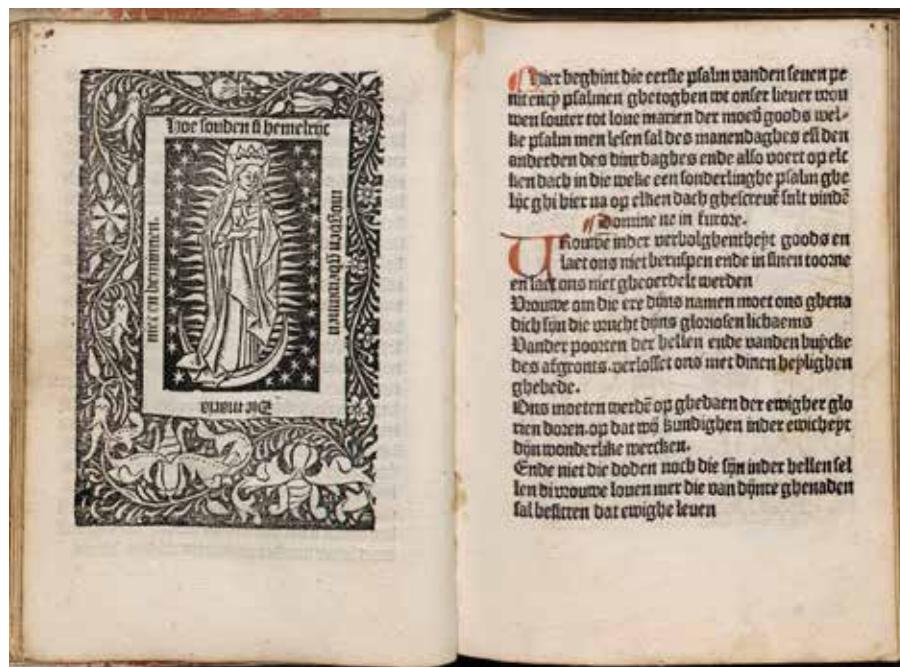 Hoe souden si hemelrijc
moghen ghewinnen
Die maria
niet en beminnen.
Hier beghint die eerste psalm vanden seuen pe
nitencij psalmen ghetoghen wt onser lieuer vrou
wen souter tot loue marien der moed̄ goods wel-
ke psalm men lesen sal des manendaghes en̄ den
anderden des dinxdaghes ende also voert op elc
ken dach in die weke een sonderlinghe psalm ghe
lijc ghi hier na op elken dach ghescreuē sult vindē
Domine ne in furore.
VRouwe inder verbolghentheyt goods en
laet ons niet berispen ende in sinen toorne
en laet ons niet gheoerdelt werden
Vrouwe om die ere dijns namen moet ons ghena
dich sijn die vrucht dijns gloriosen lichaems
Vander poorten der hellen ende vanden buycke
des afgronts. verlosset ons met dinen heylighen
ghebede.
Ons moeten werdē op ghedaen der ewigher glo
rien doren. op dat wij kundighen inder ewicheyt
dijn wonderlike wercken.
Ende niet die doden noch die sijn inder hellen sel
len di vrouwe louen mer die van dijnre ghenaden
sal besitten dat ewighe leuen